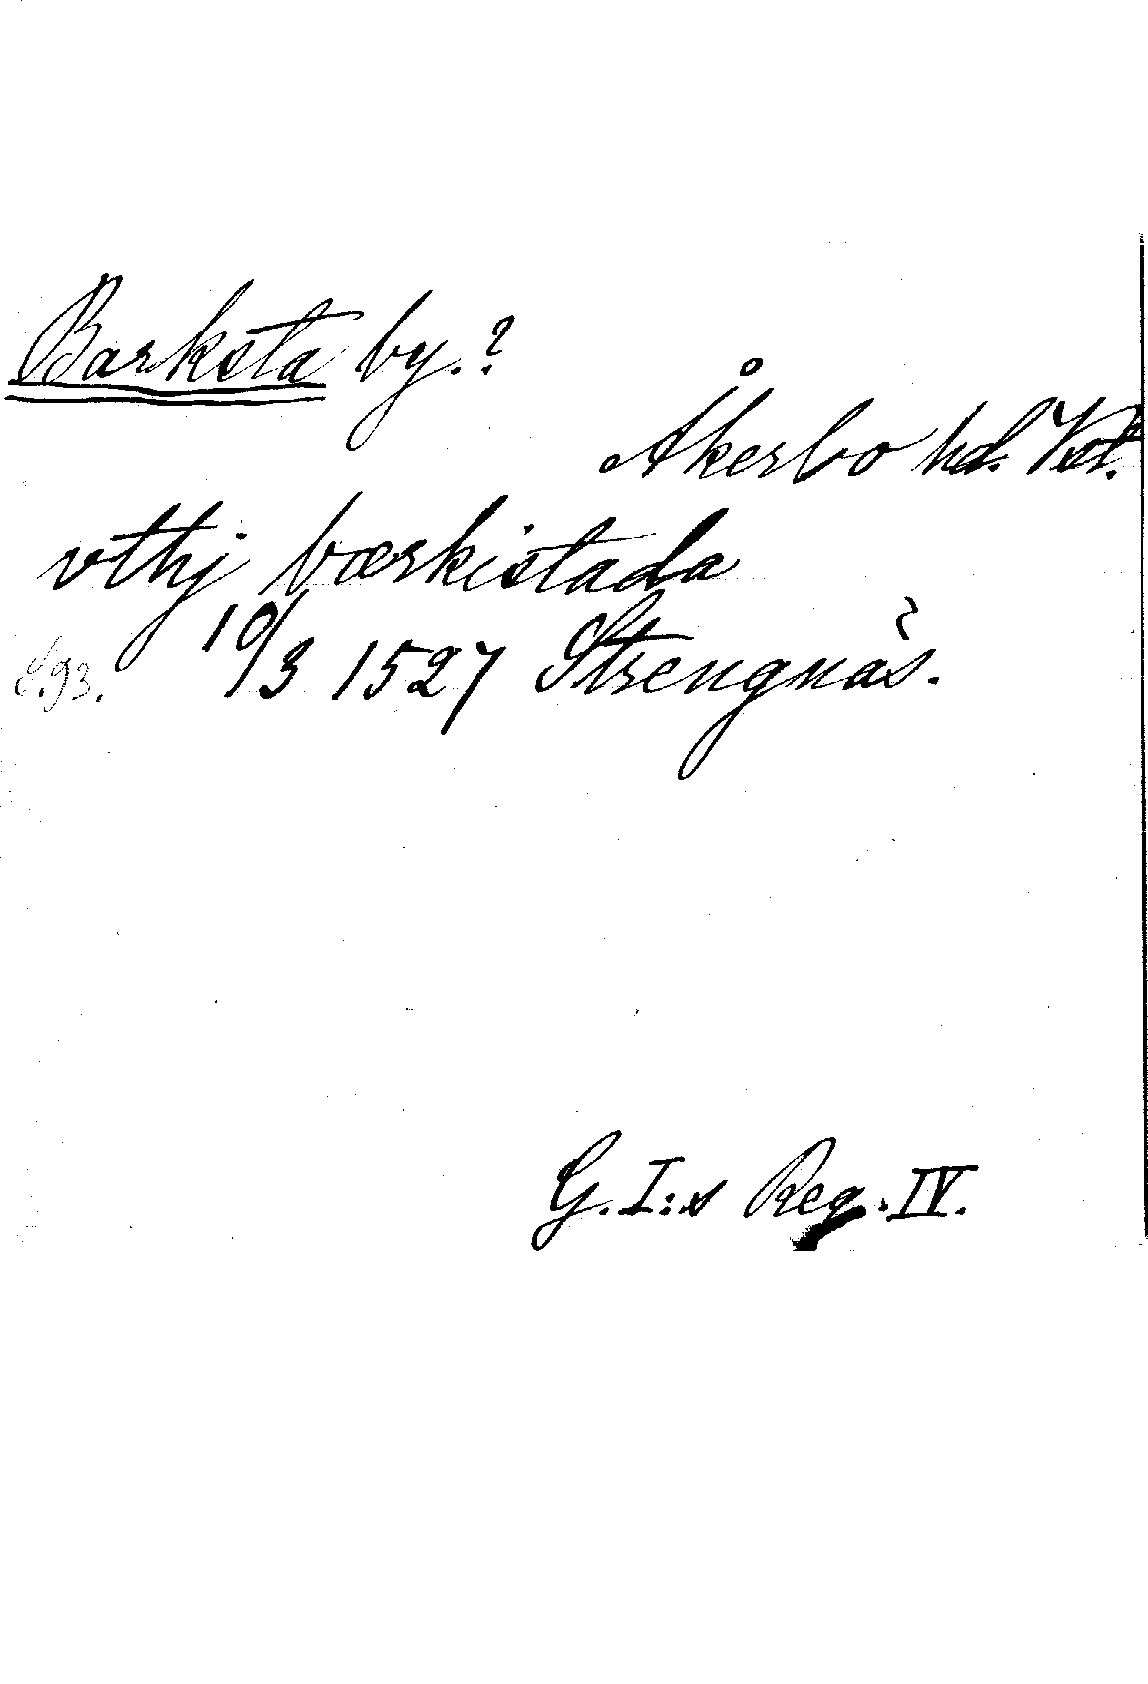 Barksta by.?
Åkerbo hd. Vstm.
vthj bærkistada
S. 93. 10/3 1527 Strengnäs.
G. I:s Reg. IV.